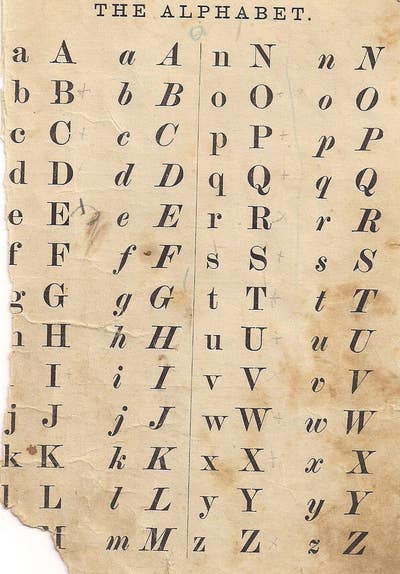 THE ALPHABET.
a A a A n N n N
b B b B o O o O
c C c C p P p P
d D d D q Q q Q
e E e E r R r R
f F f F s S s S
g G g G t T t T
h H h H u U u U
I i I v V v V
j J j J w W w W
k K k K x X x X
l L l L y Y y Y
M m M z Z z Z